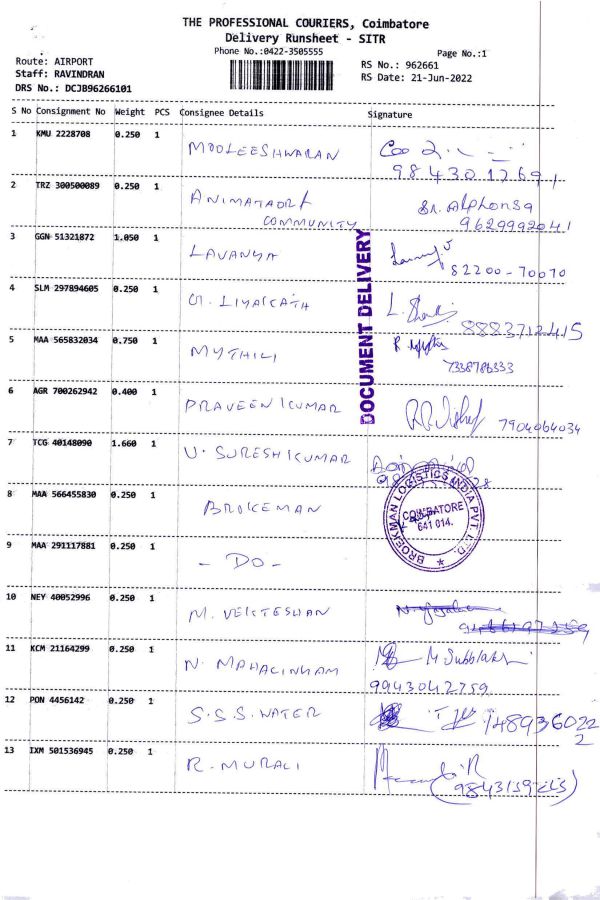 THE PROFESSIONAL COURIERS, Coimbatore
Delivery Runsheet - SITR
Phone No.:0422-3505555
Page No.:1
Route: AIRPORT
RS No.: 962661
Staff: RAVINDRAN
RS Date: 21-Jun-2022
DRS No.: DCJB96266101
S No Consignment No Weight PCS Consignee Details Signature
1 KMU 2228708 0.250 1
MOOLEESHWARAN
2 TRZ 300500089 0.250 1
Sr. Alphonsa
COMMUNITY 9629992041
3 GGN 51321872 1.050 1
LAVANYA
82200-70070
4 SLM 297894605 0.250 1
8883712415
5 MAA 565832034 0.750 1
MYTHILI
7338786333
6 AGR 700262942 0.400 1
PRAVEEN KUMAR
7904064034
7 TCG 40148090 1.660 1
V. SURESH KUMAR
8 MAA 566455830 0.250 1
BROKEMAN
9 MAA 291117881 0.250 1
- DO -
10 NEY 40052996 0.250 1
M. VEKTESHAN
11 KCM 21164299 0.250 1
N. MAHALINGAM
9943042759
12 PON 4456142 0.250 1
S.S.S. WATER
13 IXM 501536945 0.250 1
R. MURALI
DOCUMENT DELIVERY
BROEKMAN LOGISTICS INDIA PVT. LTD.
COIMBATORE
641 014.